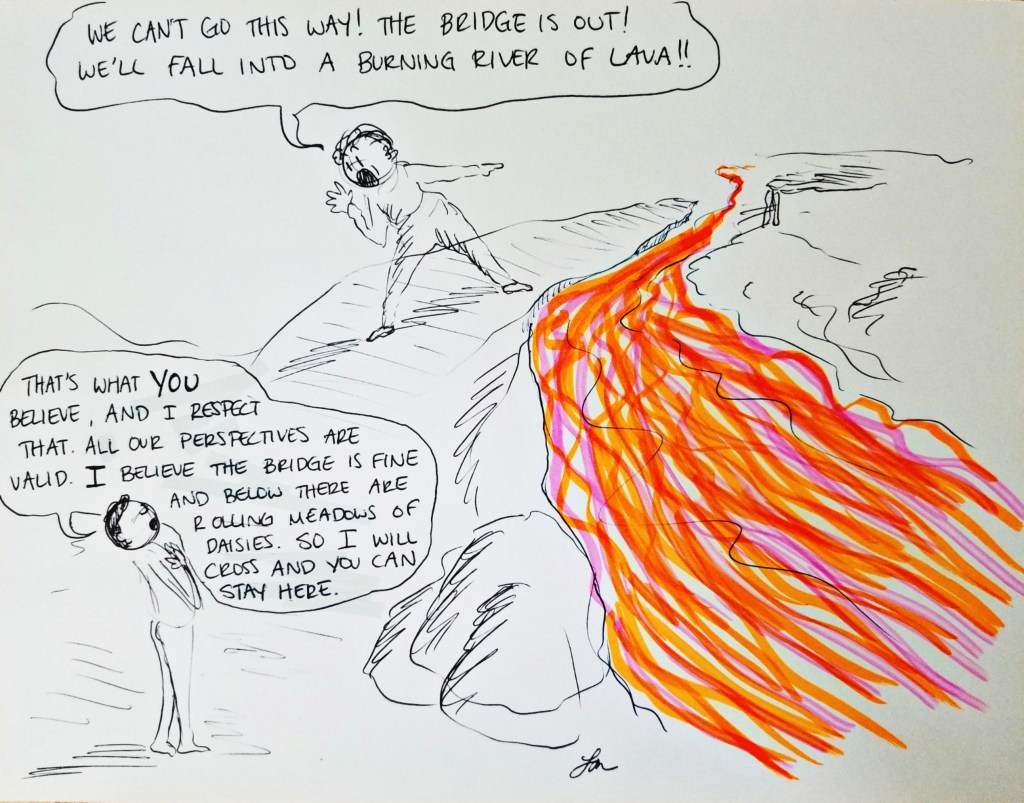 WE CAN'T GO THIS WAY! THE BRIDGE IS OUT!
WE'LL FALL INTO A BURNING RIVER OF LAVA!!
THAT'S WHAT YOU
BELIEVE, AND I RESPECT
THAT. ALL OUR PERSPECTIVES ARE
VALID. I BELIEVE THE BRIDGE IS FINE
AND BELOW THERE ARE
ROLLING MEADOWS OF
DAISIES. SO I WILL
CROSS AND YOU CAN
STAY HERE.